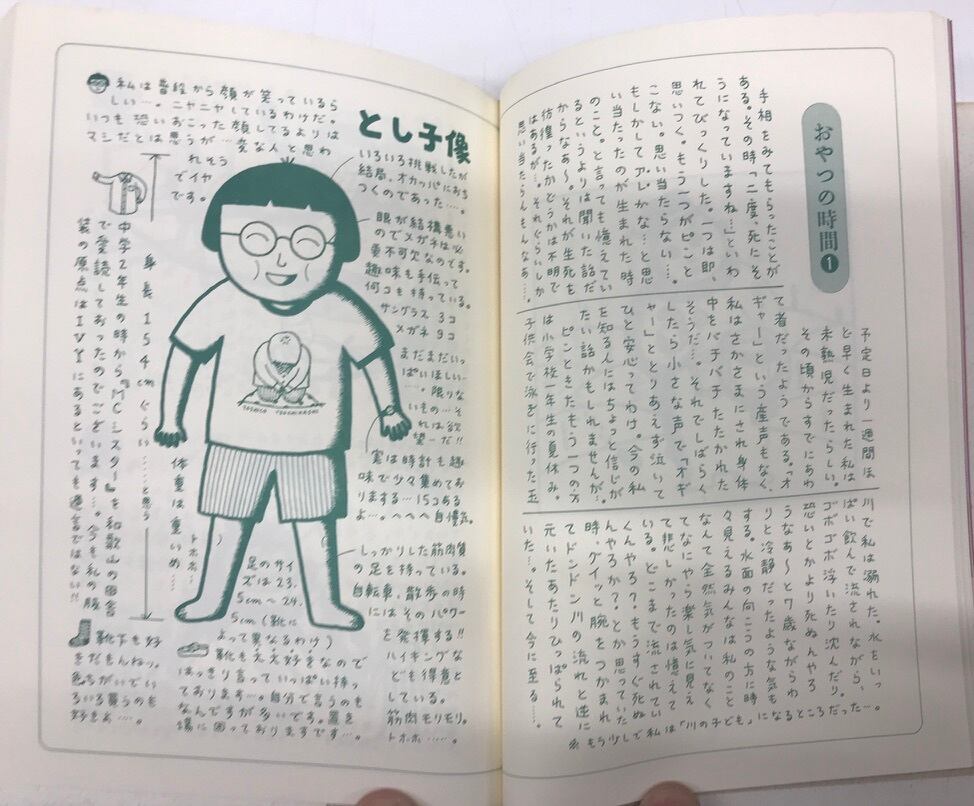 おやつの時間❶
手相をみてもらったことが
ある。その時「二度、死にそ
うになっていますね…」といわ
れてびっくりした。一つは即、
思いつく。もう一つがピンと
こない。思い当たらない…。
もしかしてアレかな…と思
い当たったのが生まれた時
のこと。と言っても憶えてい
るというよりは聞いた話だ
からなぁ〜。それが生死を
彷徨ったかどうかは不明で
はあるが…。それぐらいしか
思い当たらんもんなぁ…。
予定日より一週間ほ
ど早く生まれた私は
未熟児だったらしい。
その頃からすでにあわ
て者だったようである。「オ
ギャー」という産声もなく、
私はさかさまにされ身体
中をバチバチたたかれた
そうだ。それでしばらく
したら小さな声で「オギ
ャー」ととりあえず泣いて
ひと安心ってわけ。今の私
を知る人にはちょっと信じが
たい話かもしれませんが…
ピンときたもう一つの方
は小学校一年生の夏休み。
子供会で泳ぎに行った玉
川で私は溺れた。水をいっ
ぱい飲んで流されながら、
ゴボゴボ浮いたり沈んだり。
恐いとかより死ぬんやろ
うなあ〜と7歳ながらわ
りと冷静だったような気も
する。水面の向こうの方に時
々見えるみんなは私のこと
なんて全然気がついてなく
てなにやら楽し気に見え
て悲しかったのは憶えて
いる。どこまで流されてい
くんやろ?もうすぐ死ぬ
んやろか?とか思っていた
時、グイッと腕をつかまれ
てドンドン川の流れと逆に
元いたあたりひっぱられて
いた。そして今に至る…。
※もう少しで私は「川の子ども」になるところだった…。
とし子像
私は普段から顔が笑っているら
しい…。ニヤニヤしているわけだ。
いつも恐いおこった顔してるよりは
マシだとは思うが…変な人と思わ
れそう
でイヤ
です。
いろいろ挑戦したが
結局、オカッパにおち
つくのであった…。
眼が結構悪い
のでメガネは必
要不可欠なのです。
趣味も手伝って
何コも持っている。
サングラス 3コ
メガネ 9コ
まだまだいっ
ぱいほしい…
…。限りな
いもの…そ
れは欲
望ーだ!!
実は時計も趣
味で少々集めてお
ります…15コある
よ…。へへへ自慢気。
身長154cmぐらい……と思う
体重は重いめ…
トホホ…
中学2年生の時から『MCシスター』を和歌山の田舎
で愛読しておったのでございます…。今も私の服
装の原点はIVYにあるといっても過言ではない!!
YOSHIKO TSUCHIHASHI
しっかりした筋肉質
の足を持っている。
自転車、散歩の時
にはそのパワー
を発揮する!!
ハイキングな
ども得意と
している。
筋肉モリモリ。
トホホ……。
足のサイ
ズは23.
5cm〜24.
5cm(靴に
よって異なるわけ)
靴下も好
きだもんねッ。
色ちがいでい
ろいろ買うのも
好きよ…。
靴もええ好きなので
はっきり言っていっぱい持っ
ております…。自分で言うのも
なんですが多いです。置き
場に困っておりますです…。